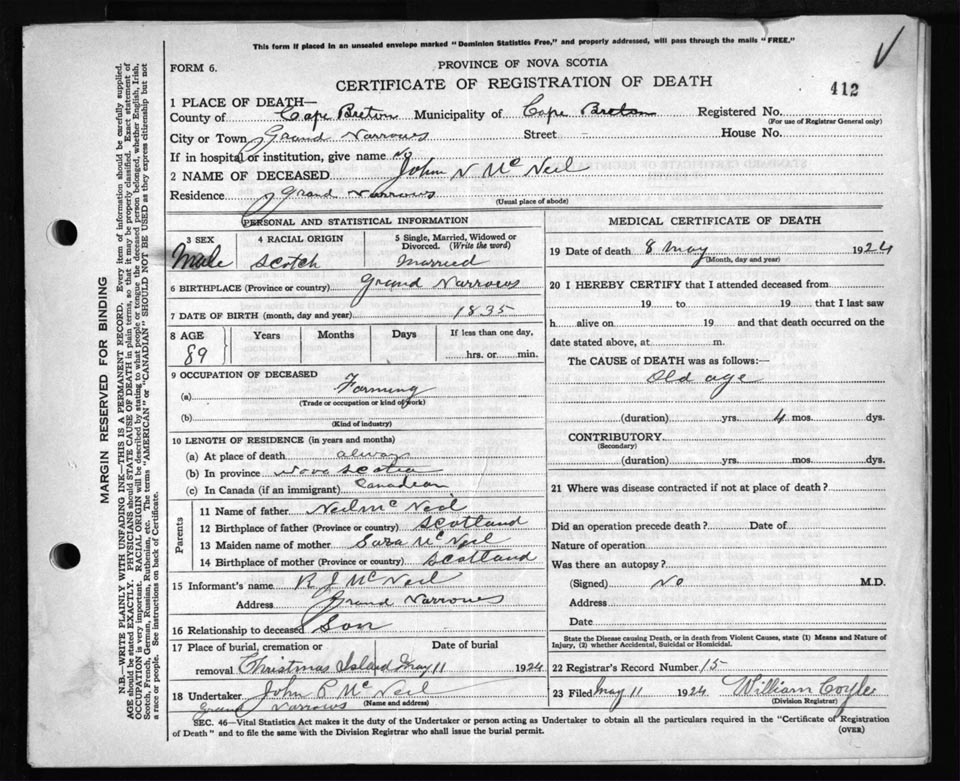 This form if placed in an unsealed envelope marked "Dominion Statistics Free," and properly addressed, will pass through the mails "FREE."
FORM 6.
PROVINCE OF NOVA SCOTIA
CERTIFICATE OF REGISTRATION OF DEATH
412
1 PLACE OF DEATH—
County of Cape Breton Municipality of Cape Breton Registered No.
(For use of Registrar General only)
City or Town Grand Narrows Street House No.
If in hospital or institution, give name No
2 NAME OF DECEASED John N McNeil
Residence Grand Narrows
(Usual place of abode)
PERSONAL AND STATISTICAL INFORMATION
3 SEX 4 RACIAL ORIGIN 5 Single, Married, Widowed or Divorced. (Write the word)
Male Scotch Married
6 BIRTHPLACE (Province or country) Grand Narrows
7 DATE OF BIRTH (month, day and year) 1835
8 AGE Years Months Days If less than one day,
89 hrs. or min.
9 OCCUPATION OF DECEASED
(a) Farming
(Trade or occupation or kind of work)
(b)
(Kind of industry)
10 LENGTH OF RESIDENCE (in years and months)
(a) At place of death always
(b) In province Nova Scotia
(c) In Canada (if an immigrant) Canadian
Parents
11 Name of father Neil McNeil
12 Birthplace of father (Province or country) Scotland
13 Maiden name of mother Sara McNeil
14 Birthplace of mother (Province or country) Scotland
15 Informant's name R J McNeil
Address Grand Narrows
16 Relationship to deceased Son
17 Place of burial, cremation or Date of burial
removal Christmas Island May 11 1924
18 Undertaker John P McNeil
Grand Narrows (Name and address)
MEDICAL CERTIFICATE OF DEATH
19 Date of death 8 May 1924
(Month, day and year)
20 I HEREBY CERTIFY that I attended deceased from
19 to 19 that I last saw
h alive on 19 and that death occurred on the
date stated above, at m.
The CAUSE of DEATH was as follows:—
Old age
(duration) yrs. 4 mos. dys.
CONTRIBUTORY
(Secondary)
(duration) yrs. mos. dys.
21 Where was disease contracted if not at place of death?
Did an operation precede death? Date of
Nature of operation
Was there an autopsy?
(Signed) No M.D.
Address
Date
State the Disease causing Death, or in death from Violent Causes, state (1) Means and Nature of
Injury, (2) whether Accidental, Suicidal or Homicidal.
22 Registrar's Record Number 15
23 Filed May 11 1924 William Coyle
(Division Registrar)
SEC. 46—Vital Statistics Act makes it the duty of the Undertaker or person acting as Undertaker to obtain all the particulars required in the "Certificate of Registration
of Death" and to file the same with the Division Registrar who shall issue the burial permit.
(OVER)
MARGIN RESERVED FOR BINDING
N.B.—WRITE PLAINLY WITH UNFADING INK—THIS IS A PERMANENT RECORD. Every item of information should be carefully supplied.
AGE should be stated EXACTLY. PHYSICIANS should STATE CAUSE OF DEATH in plain terms, so that it may be properly classified. Exact statement of
OCCUPATION is very important. RACIAL ORIGIN will be described by stating to what people or tongue the deceased person belonged, whether English, Irish,
Scotch, French, German, Russian, Ruthenian, etc. The terms "AMERICAN" or "CANADIAN" SHOULD NOT BE USED as they express citizenship but not
a race or people. See instructions on back of Certificate.